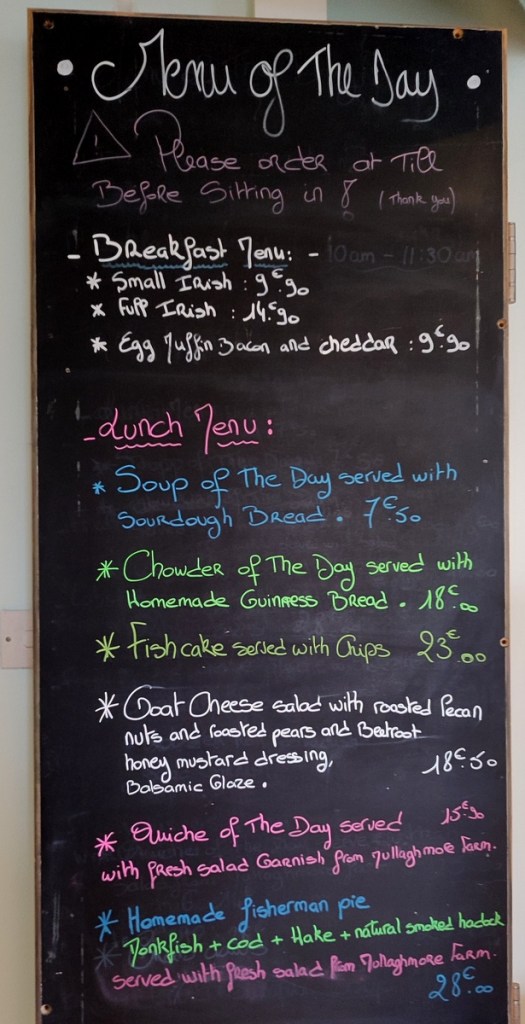 • Menu of The Day •
Please order at Till
Before Sitting in ! (Thank you)
- Breakfast Menu: - 10am - 11:30am
* Small Irish : 9€.90
* Full Irish : 14€.90
* Egg Muffin Bacon and cheddar : 9€.90
- Lunch Menu :
* Soup of The Day served with
Sourdough Bread . 7€.50
* Chowder of The Day served with
Homemade Guinness Bread . 18€.00
* Fish cake served with Chips 23€.00
* Goat Cheese salad with roasted Pecan
nuts and roasted pears and Beetroot
honey mustard dressing,
Balsamic Glaze . 18€.50
* Quiche of The Day served 15€.90
with fresh salad Garnish from Mullaghmore Farm.
* Homemade fisherman pie
Monkfish + cod + Hake + natural smoked hadock
served with fresh salad from Mollaghmore Farm.
28€.00